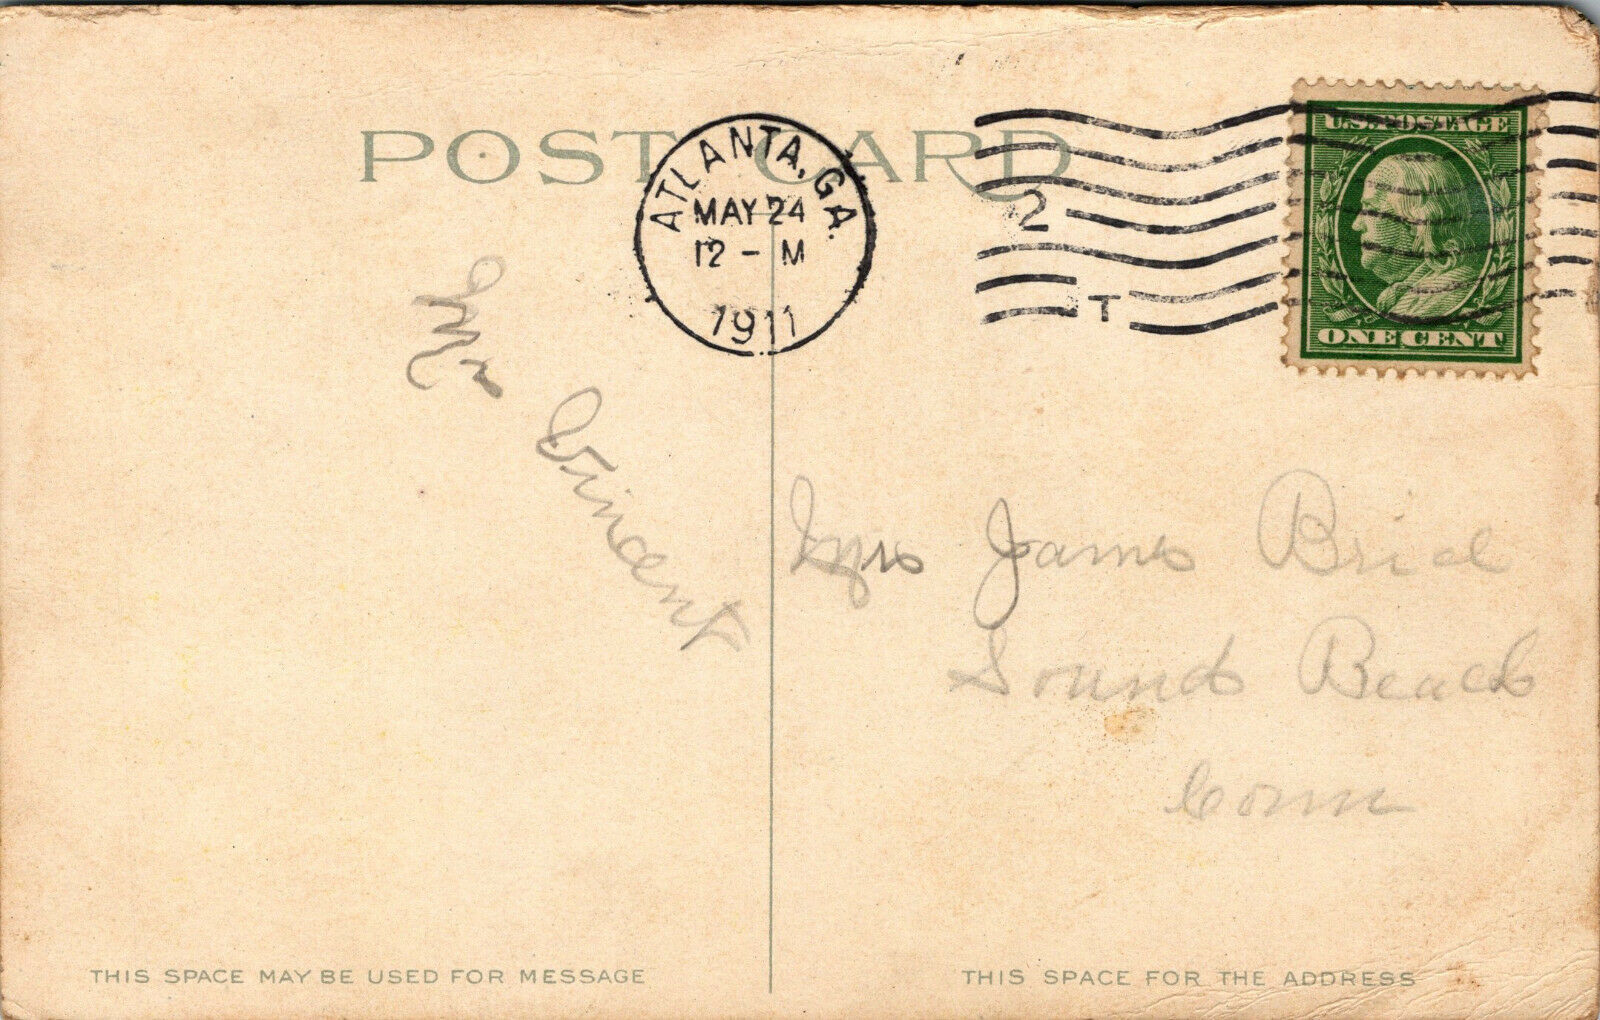 POST CARD
ATLANTA, GA.
MAY 24
12 - M
1911
2
T
U.S. POSTAGE
ONE CENT
Mr Vincent
Mrs James Bried
Sound Beach
Conn
THIS SPACE MAY BE USED FOR MESSAGE
THIS SPACE FOR THE ADDRESS